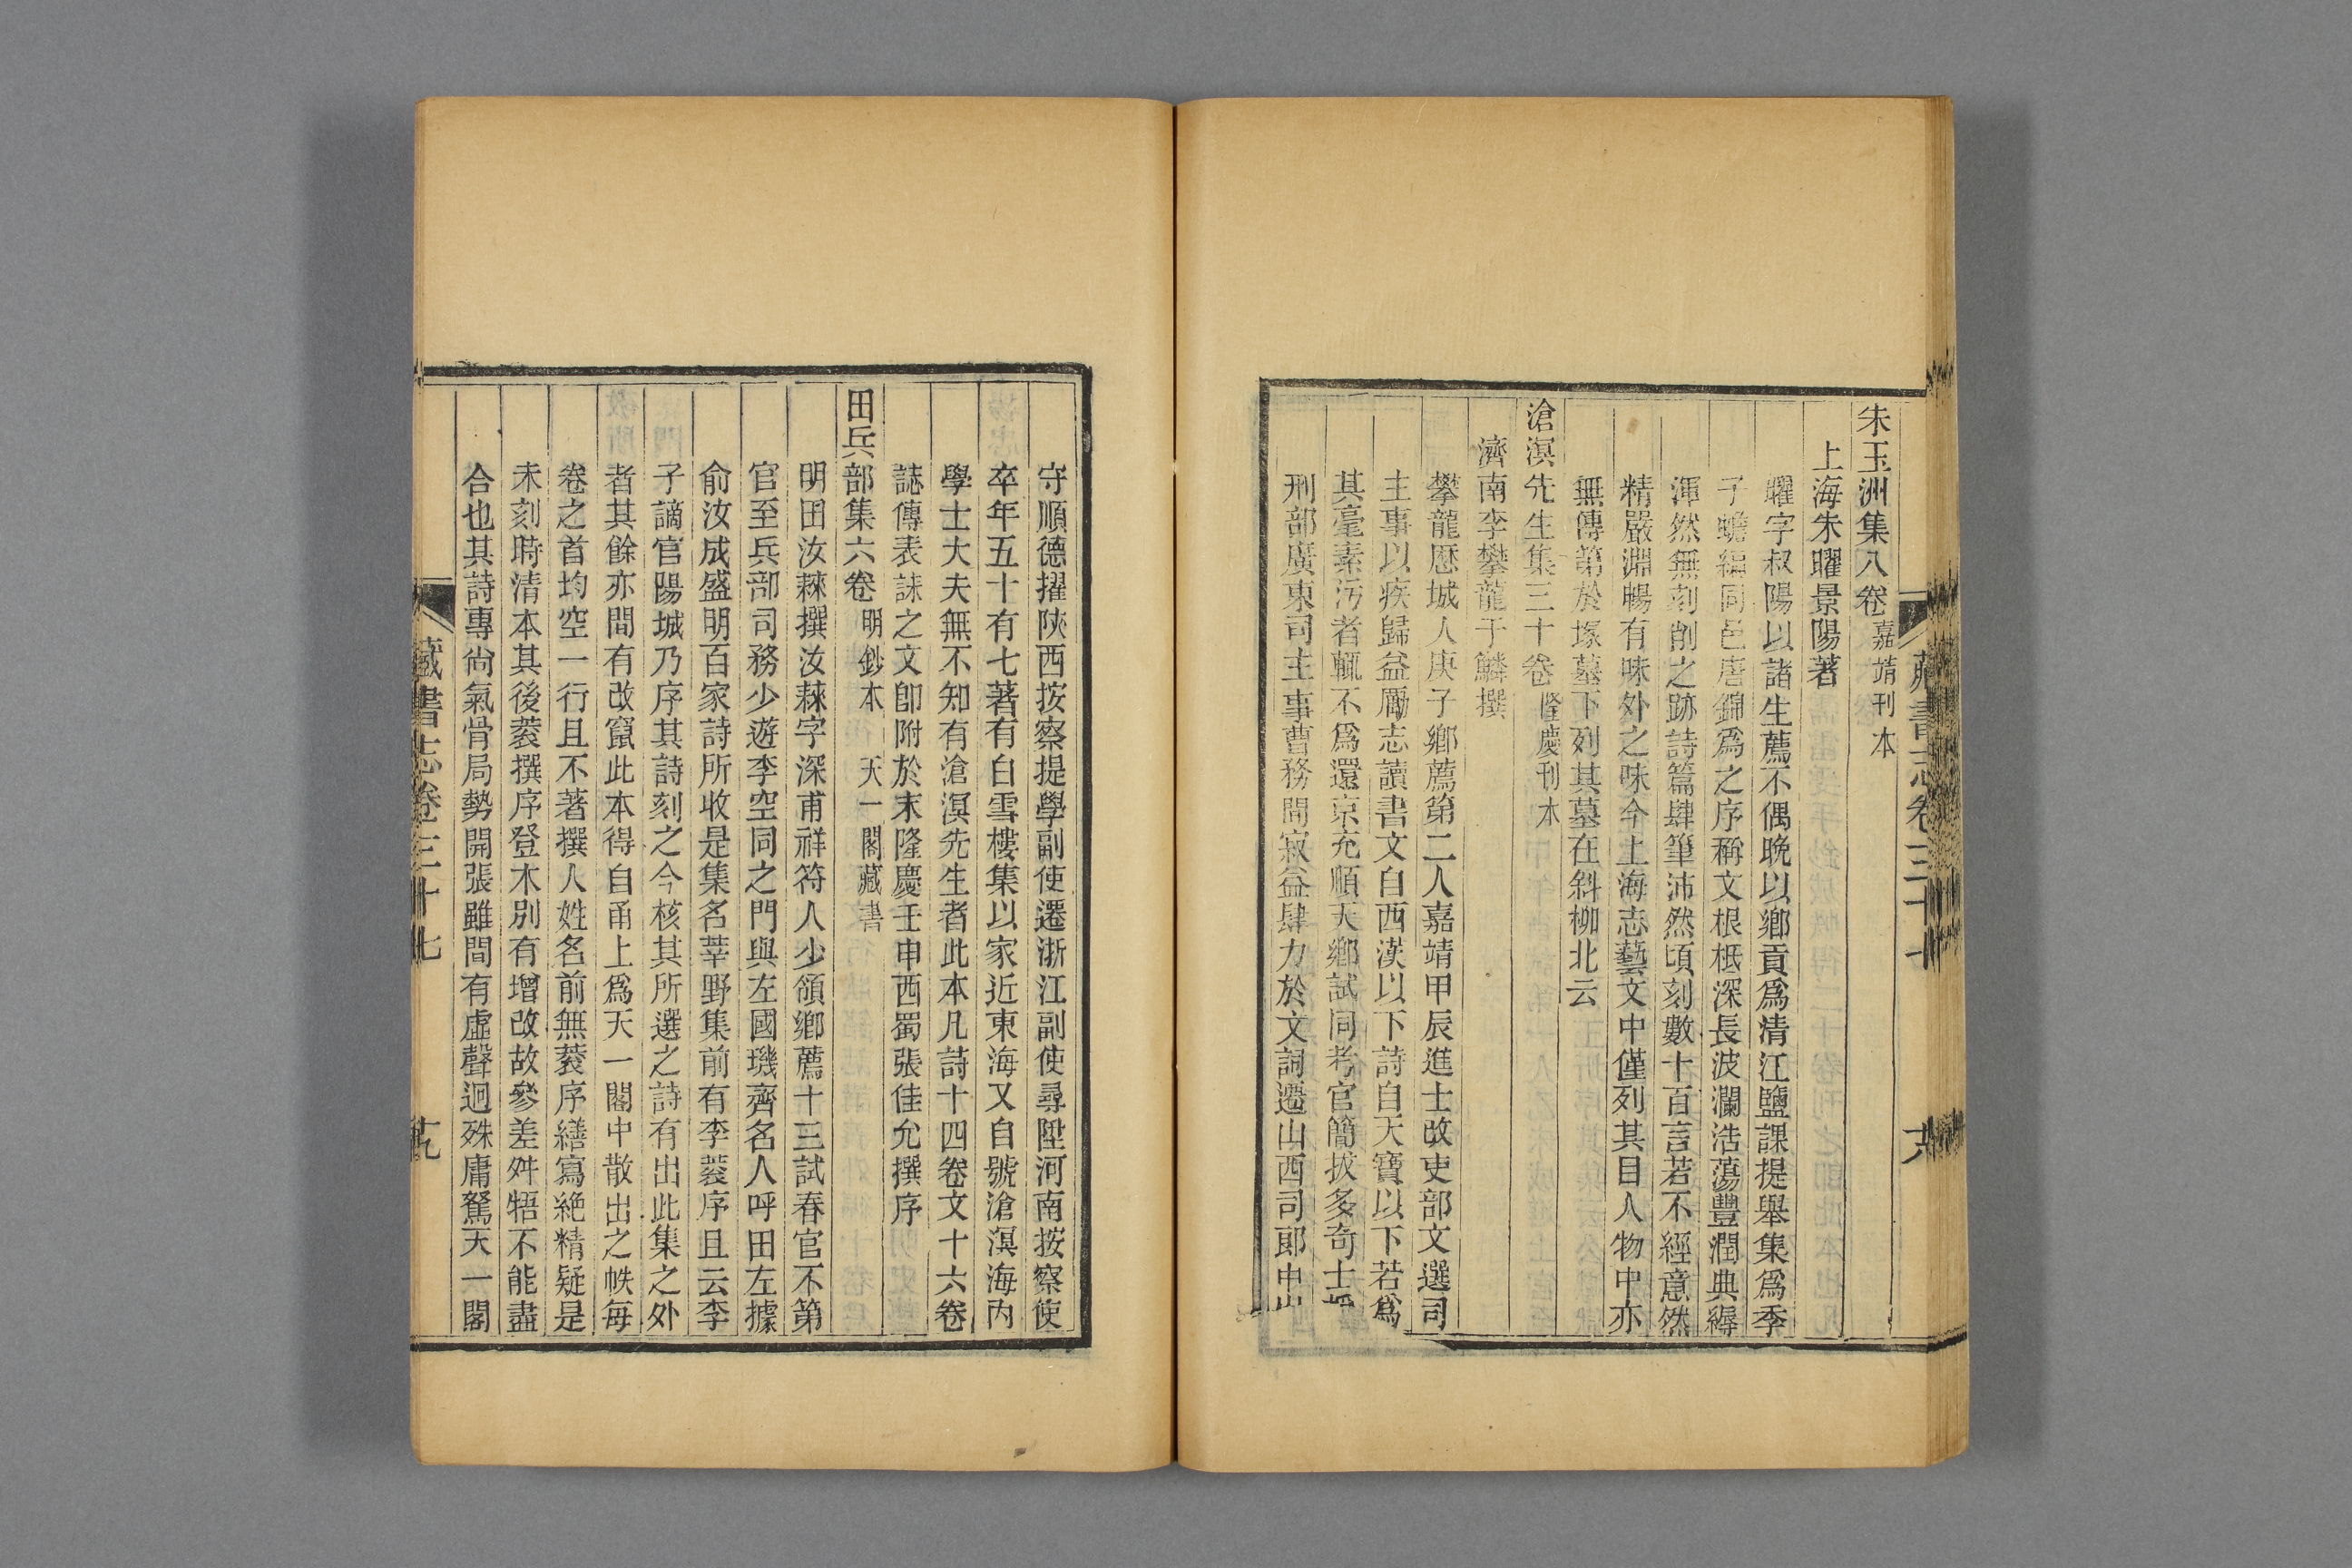 朱玉洲集八卷 嘉靖刊本
上海朱曜景陽著
曜字叔陽以諸生薦不偶晚以鄉貢爲清江鹽課提舉集爲季
子蟾編同邑唐錦爲之序稱文根柢深長波瀾浩蕩豐潤典縟
渾然無刻削之跡詩篇肆筆沛然頃刻數十百言若不經意然
精嚴淵暢有味外之味今上海志藝文中僅列其目人物中亦
無傳第於塚墓下列其墓在斜柳北云
滄溟先生集三十卷 隆慶刊本
濟南李攀龍于鱗撰
攀龍歷城人庚子鄉薦第二人嘉靖甲辰進士改吏部文選司
主事以疾歸益勵志讀書文自西漢以下詩自天寶以下若爲
其毫素污者輒不爲還京充順天鄉試同考官簡拔多奇士
刑部廣東司主事曹務閒寂益肆力於文詞遷山西司郎中出
藏書志卷三十七
六
守順德擢陝西按察提學副使遷浙江副使尋陞河南按察使
卒年五十有七著有白雪樓集以家近東海又自號滄溟海內
學士大夫無不知有滄溟先生者此本凡詩十四卷文十六卷
誌傳表誄之文卽附於末隆慶壬申西蜀張佳允撰序
田兵部集六卷 明鈔本 天一閣藏書
明田汝䅘撰汝䅘字深甫祥符人少領鄉薦十三試春官不第
官至兵部司務少遊李空同之門與左國璣齊名人呼田左據
俞汝成盛明百家詩所收是集名莘野集前有李蓘序且云李
子謫官陽城乃序其詩刻之今核其所選之詩有出此集之外
者其餘亦間有改竄此本得自甬上爲天一閣中散出之帙每
卷之首均空一行且不著撰人姓名前無蓘序繕寫絕精疑是
未刻時清本其後蓘撰序登木別有增改故參差舛牾不能盡
合也其詩專尚氣骨局勢開張雖間有虛聲迥殊庸駑天一閣
藏書志卷三十七
九